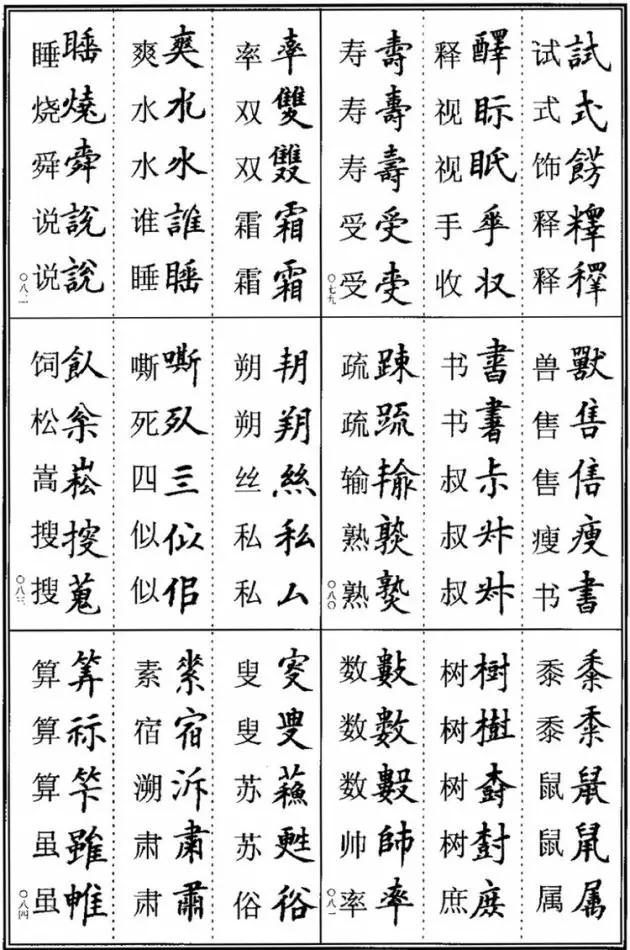 试試
式式
饰餝
释
释
释醳
视眎
视眡
手
收収
寿壽
寿壽
寿壽
受受
受
〇七九
兽獸
售售
售
瘦瘦
书書
书書
书書
叔
叔
叔
疏踈
疏䟽
输
熟
熟
〇八〇
黍黍
黍
鼠鼠
鼠
属属
树樹
树樹
树
树尌
庶庻
数數
数數
数
帅帥
率率
〇八一
率率
双雙
双雙
霜霜
霜霜
爽爽
水水
水水
谁誰
睡睡
睡睡
烧燒
舜舜
说說
说説
朔
朔朔
丝絲
私私
私厶
嘶嘶
死
四亖
似似
似佀
饲飤
松枀
嵩崧
搜
搜蒐
〇八三
叟
叟
苏蘓
苏甦
俗俗
素
宿宿
溯泝
肃肅
肃
算筭
算祘
算
虽雖
虽
〇八四